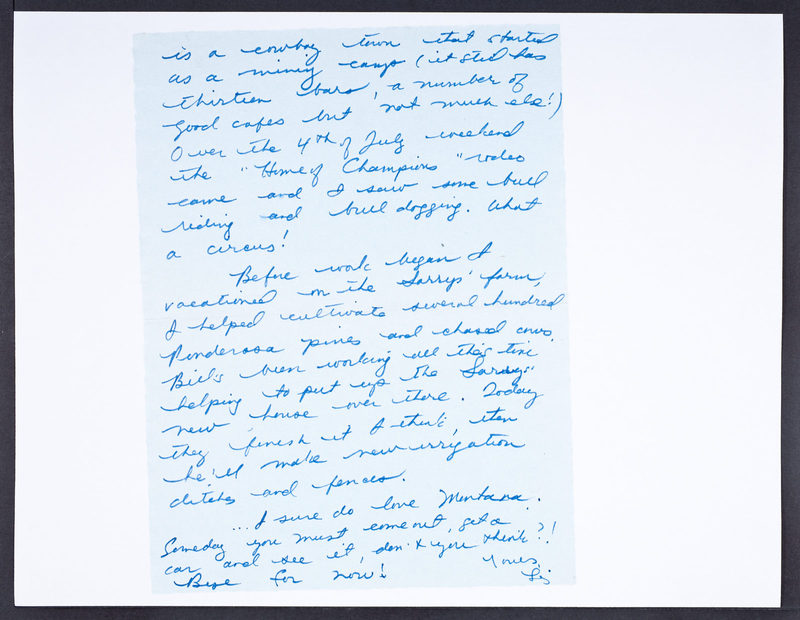 is a cowboy town that started
as a mining camp (it still has
thirteen bars, a number of
good cafes but not much else!)
Over the 4th of July weekend
the "Home of Champions" rodeo
came and I saw some bull
riding and bull dogging. What
a circus!
Before work began I
vacationed on the Sarrys' farm,
I helped cultivate several hundred
Ponderosa pines and chased cows.
Bill's been working all this time
helping to put up the Sarrys'
new house over there. Today
they finish it I think, then
he'll make new irrigation
ditches and fences.
...I sure do love Montana.
Someday you must come out, get a
car and see it, don't you think?!
Bye for now! Yours,